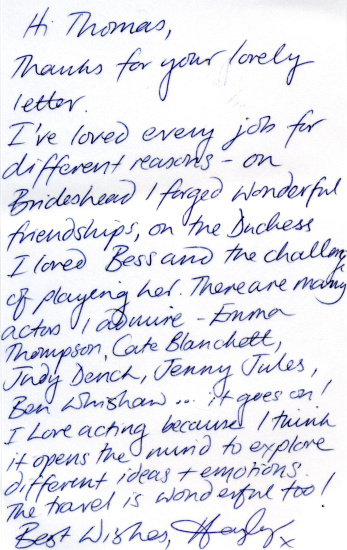 Hi Thomas,
Thanks for your lovely
letter.
I've loved every job for
different reasons - on
Brideshead I forged wonderful
friendships, on the Duchess
I loved Bess and the challenge
of playing her. There are many
actors I admire - Emma
Thompson, Cate Blanchett,
Judy Dench, Jenny Jules,
Ben Whishaw ... it goes on!
I Love acting because I think
it opens the mind to explore
different ideas + emotions.
The travel is wonderful too!
Best Wishes, Hayley x